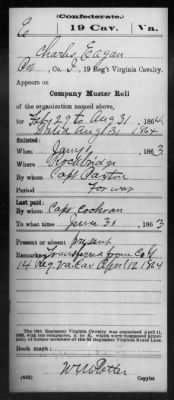 (Confederate.)
E 19 Cav. Va.
Charles Eagan
Co. , 19 Reg't Virginia Cavalry.
Appears on
Company Muster Roll
of the organization named above,
for Feby 29 to Aug 31, 1864.
Dated Aug 31 1864
Enlisted:
When Jany 1, 1863
Where Rockbridge
By whom Capt
Period For war
Last paid:
By whom Capt Cochran
To what time June 30, 1863
Present or absent present
Remarks: Transferred from Co G
14 Reg Va Cav April 12 1864
The 19th Regiment Virginia Cavalry was organized April 11, 1863, with ten companies, A to K, which were composed of former members of the 3d Regiment Virginia State Line.
Book mark:
(642)
Copyist.